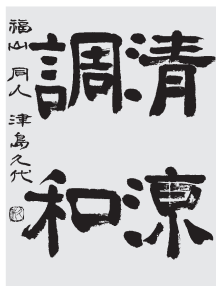 清涼
調和
福山 同人 津島久代